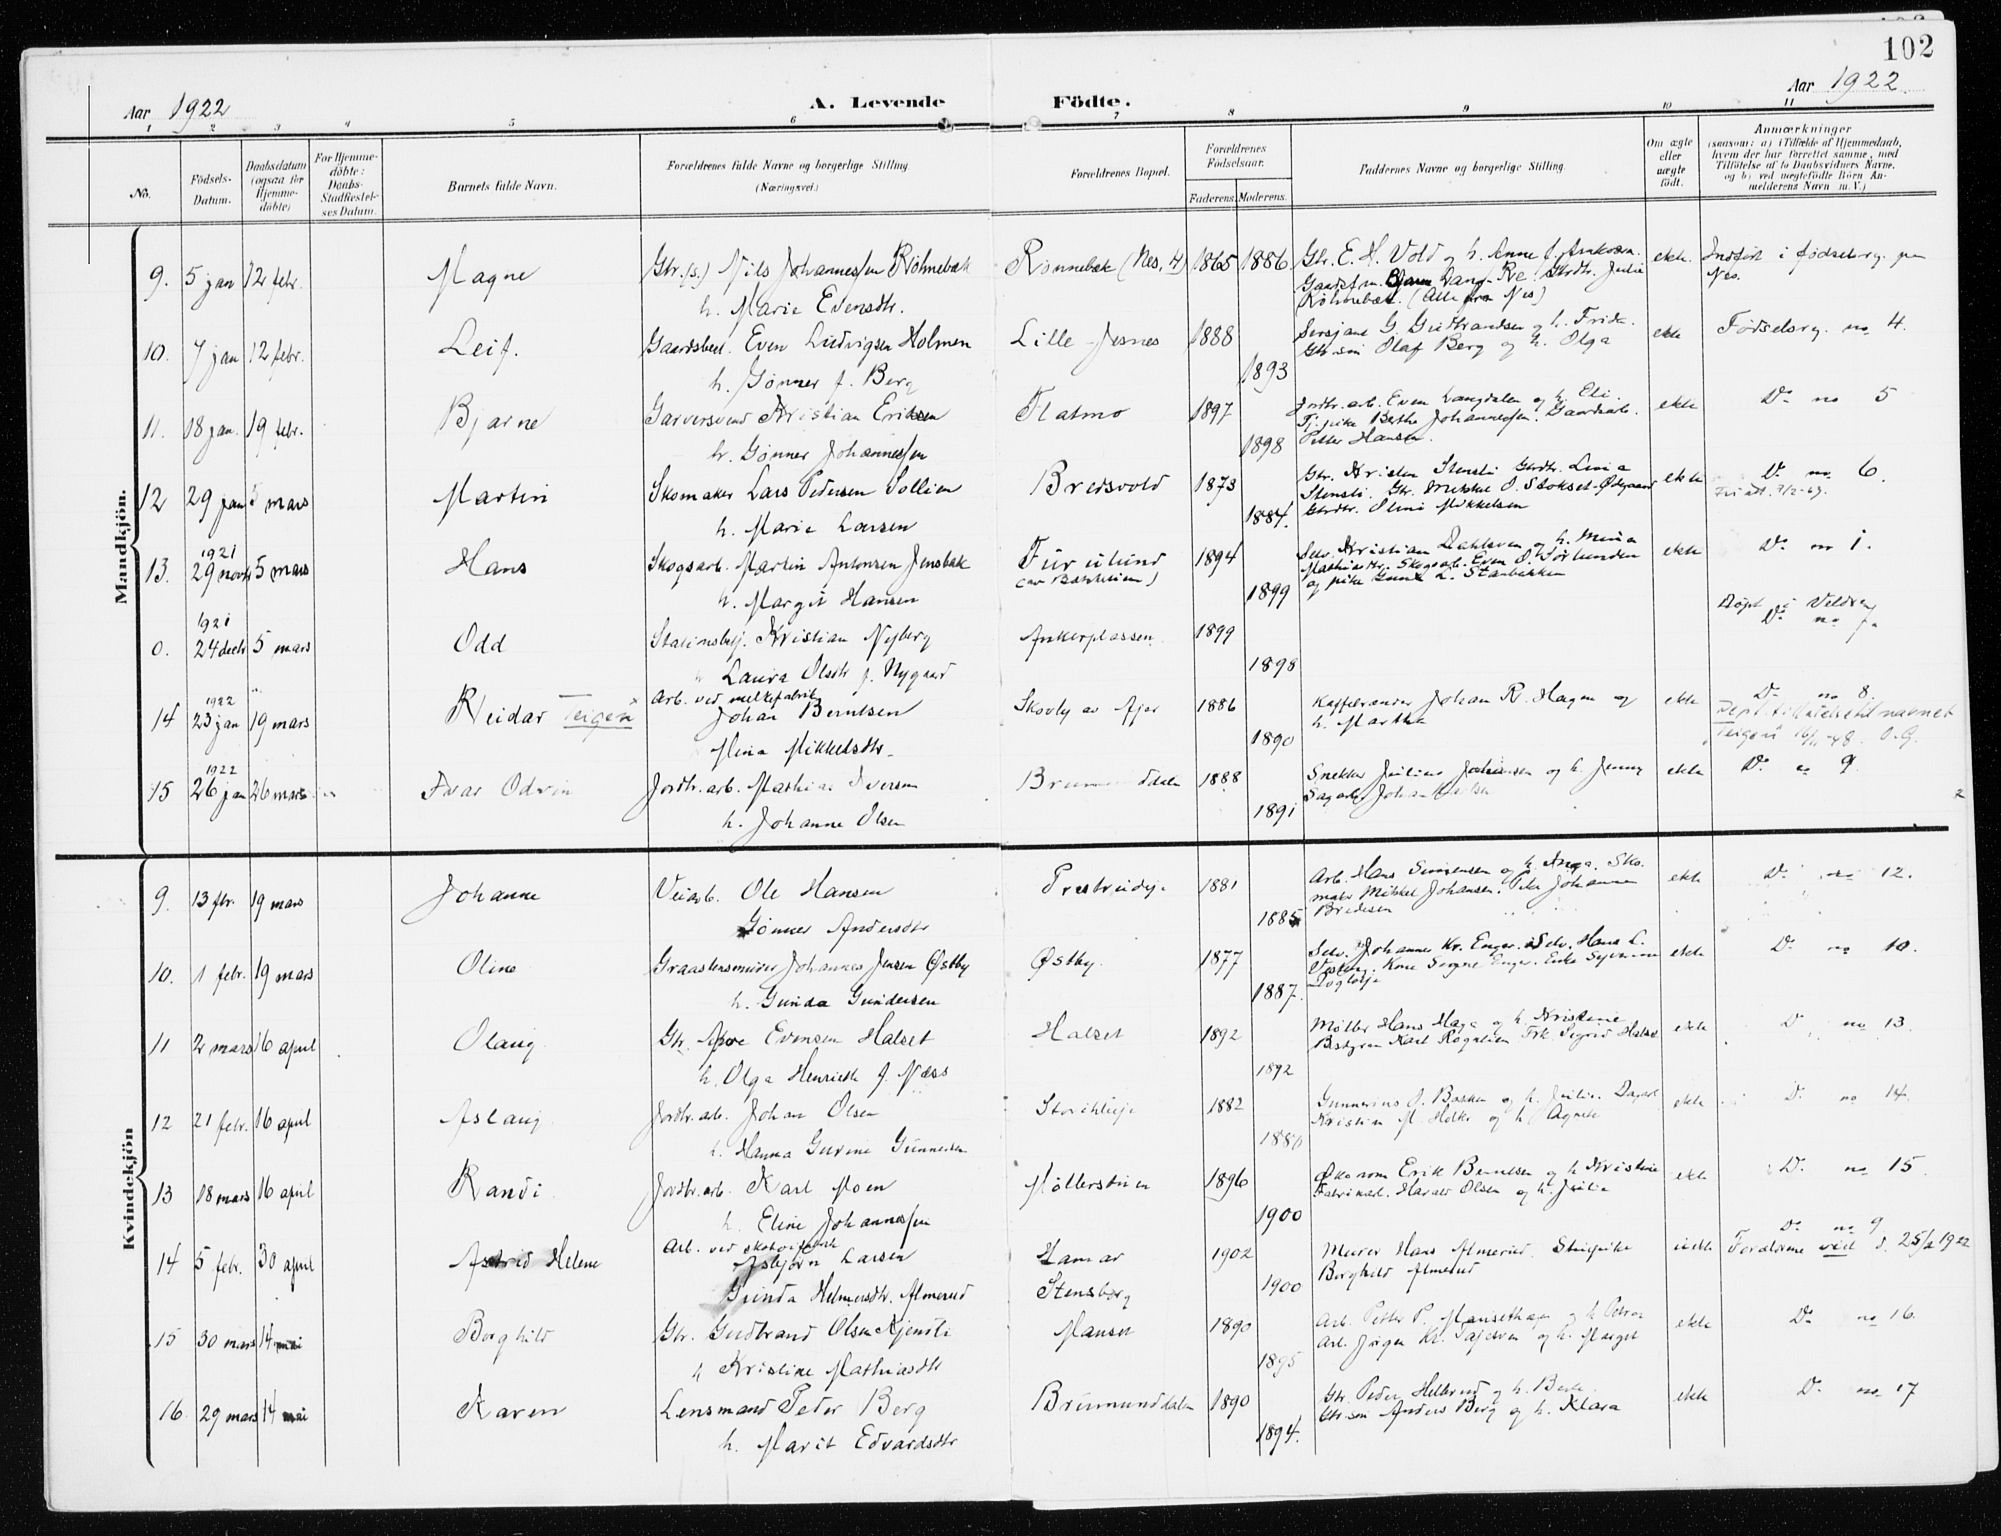 102
Aar 1922 A. Levende Födte. Aar 1922
1 2 3 4 5 6 7 8 9 10 11
No.
Födsels-Datum.
Daabsdatum (ogsaa for Hjemme-döbte)
For Hjemme-döbte: Daabs-Stadfæstel-ses Datum.
Barnets fulde Navn.
Forældrenes fulde Navne og borgerlige Stilling (Næringsvei.)
Forældrenes Bopæl.
Forældrenes Födselsaar.
Faderens. Moderens.
Faddernes Navne og borgerlige Stilling.
Om ægte eller uægte födt.
Anmærkninger
(saasom: a) i Tilfælde af Hjemmedaab, hvem der har forrettet samme, med Tilföielse af to Daabsvidners Navne, og b) ved uægtefödte Börn An-melderens Navn m. V.)
Mandkjön.
9. 5 jan 12 febr. Magne Gbr. (s.) Nils Johannessen Röhnebæk Rønnebæk (Nes, H) 1865 1886 Gbr. E. H. Vold og h. Anne f. ekte. Indført i fødselsrg. paa Nes.
h. Marie Evensdtr. Röhnebæk. (Alle fra Nes)
10. 7 jan 12 febr. Leif. Gaardsbest. Even Ludvigsen Holmen Lille-Jesnes 1888 Sersjant G. Gudbrandsen og h. Frida. ekte Fødselsrg. no 4.
h. Gønner f. Berg 1893 Gbr. søn Olaf Berg og h. Olga
11. 18 jan. 19 febr. Bjarne Garversvend Kristian Eriksen Flatmo 1897 Jordbr. arb. Even Langdalen og h. Eli. ekte Do no 5
h. Gønner Johannessen 1898 Tj. pike Berthe Johannessen. Gaardsarb. Petter Hansen.
12 29 jan 5 mars Martin Skomaker Lars Pedersen Sollien Bredsvold 1873 Gbr. Kristen Stensli Gbrdtr. Lina ekte Do no 6.
h. Marie Larsen 1884. Stensli. Gbr. Mikkel O. Stokset-Ødegaard Gbrdtr. Olini Mikkelsen
13. 1921 29 novbr 5 mars Hans Skogsarb. Martin Antonsen Jensbak Furulund 1894 Selv. Kristian Dahlsven og h. Mina ekte Do no 1.
h. Margit Hansen 1899 Mathiasdtr. Skogsarb. Even O.
0. 1921 24 decbr 5 mars Odd Stasionsbetj. Kristian Nyberg Ankerplassen 1899 Døpt i Veldre Do no 7.
Laura Olsdtr f. Nygaard 1898
14 1922 23 jan 19 mars Reidar Teigen Arb. ved melkefabrik Johan Berntsen Skovly av Njær 1886 Kafferønder Johan R. Hagen og h. Martha ekte Do no 8.
Mina Mikkelsdtr. 1890 Teigen 16/11-48. O.G.
15 1922 26 jan 26 mars Ivar Odvin Jordbr. arb. Mathias Iversen Brumunddalen 1888 Snekker Julius Johansen og h. Jenny ekte Do no 9
h. Johanne Olsen 1891
Kvindekjön
9. 13 fbr. 19 mars Johanne Veiarb. Ole Hansen 1881 Arb. Hans Simensen og h. Anga. Sko- ekte Do no 12.
Gønner Andersdtr 1885 maker Mikkel Johansen. Pike Johanne Bredesen
10. 1 febr. 19 mars Oline Graastensmurer Johannes Jensen Østby Østby. 1877 Selv. Johannes Kr. Enger. Selv. Hans L. ekte Do no 10.
h. Gunda Gundersen 1887.
11 2 mars 16 april Olaug Gbr. Arve Evensen Halset Halset 1892 Møller Hans Haga og h. Kristine ekte Do no 13.
h. Olga Henriette f. Næss 1892 Bestyrer Karl Rognlien Frk. Sigrid Halset
12 21 febr. 16 april Aslaug Jordbr. arb. Johan Olsen 1882 Gunnerius J. Bakken og h. Julie. ekte Do no 14.
h. Hanna Gurine Gunnersen Kristian M. og h. Agnete
13 18 mars 16 april Randi Jordbr. arb. Karl Moen Møllerstuen 1896 Økonom Erik Berntsen og h. Kristine ekte Do no 15
h. Eline Johannessen 1900 Fabrikarb. Harald Olsen og h. Julia
14 5 febr. 30 april Astrid Helene Arb. ved skotøifabrik Asbjørn Larsen Hamar 1902 Murer Hans Almerud. Stuepike uekte Do no 9 Forældrene viet d. 25/2 1922
Gunda Helmersdtr. Almerud Stensborg 1900 Borghild Almerud
15 30 mars 14 mai Borghild Gbr. Gudbrand Olsen Kjensli Mauset 1890 Arb. Petter P. Mausethagen og h. Petra ekte Do no 16.
h Kristine Mathiasdtr 1895 Arb. Jørgen Kr. og h. Margit
16. 29 mars 14 mai Karen Lensmand Peter Berg Brumunddalen 1890 Gbr. Peder og h. Berte. ekte Do no 17
h. Marit Edvardsdtr 1894. Gbr. søn Anders Berg og h. Klara